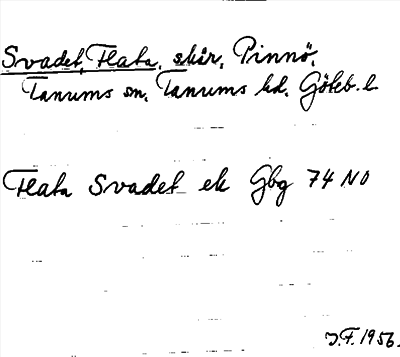 Svadet, Flata, skär, Pinnö,
Tanums sn, Tanums hd, Göteb. l.
Flata Svadet ek Gbg 74 NO
J.F. 1956.